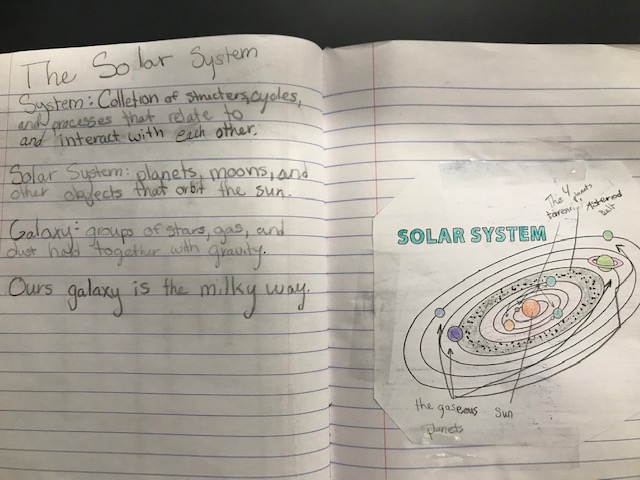 The Solar System
System: Colletion of structers, cycles,
and processes that relate to
and interact with each other.
Solar System: planets, moons, and
other objects that orbit the sun.
Galaxy: groups of stars, gas, and
dust held together with gravity.
Ours galaxy is the milky way.
SOLAR SYSTEM
The 4
Asteroid
belt
Sun
the gaseous
planets